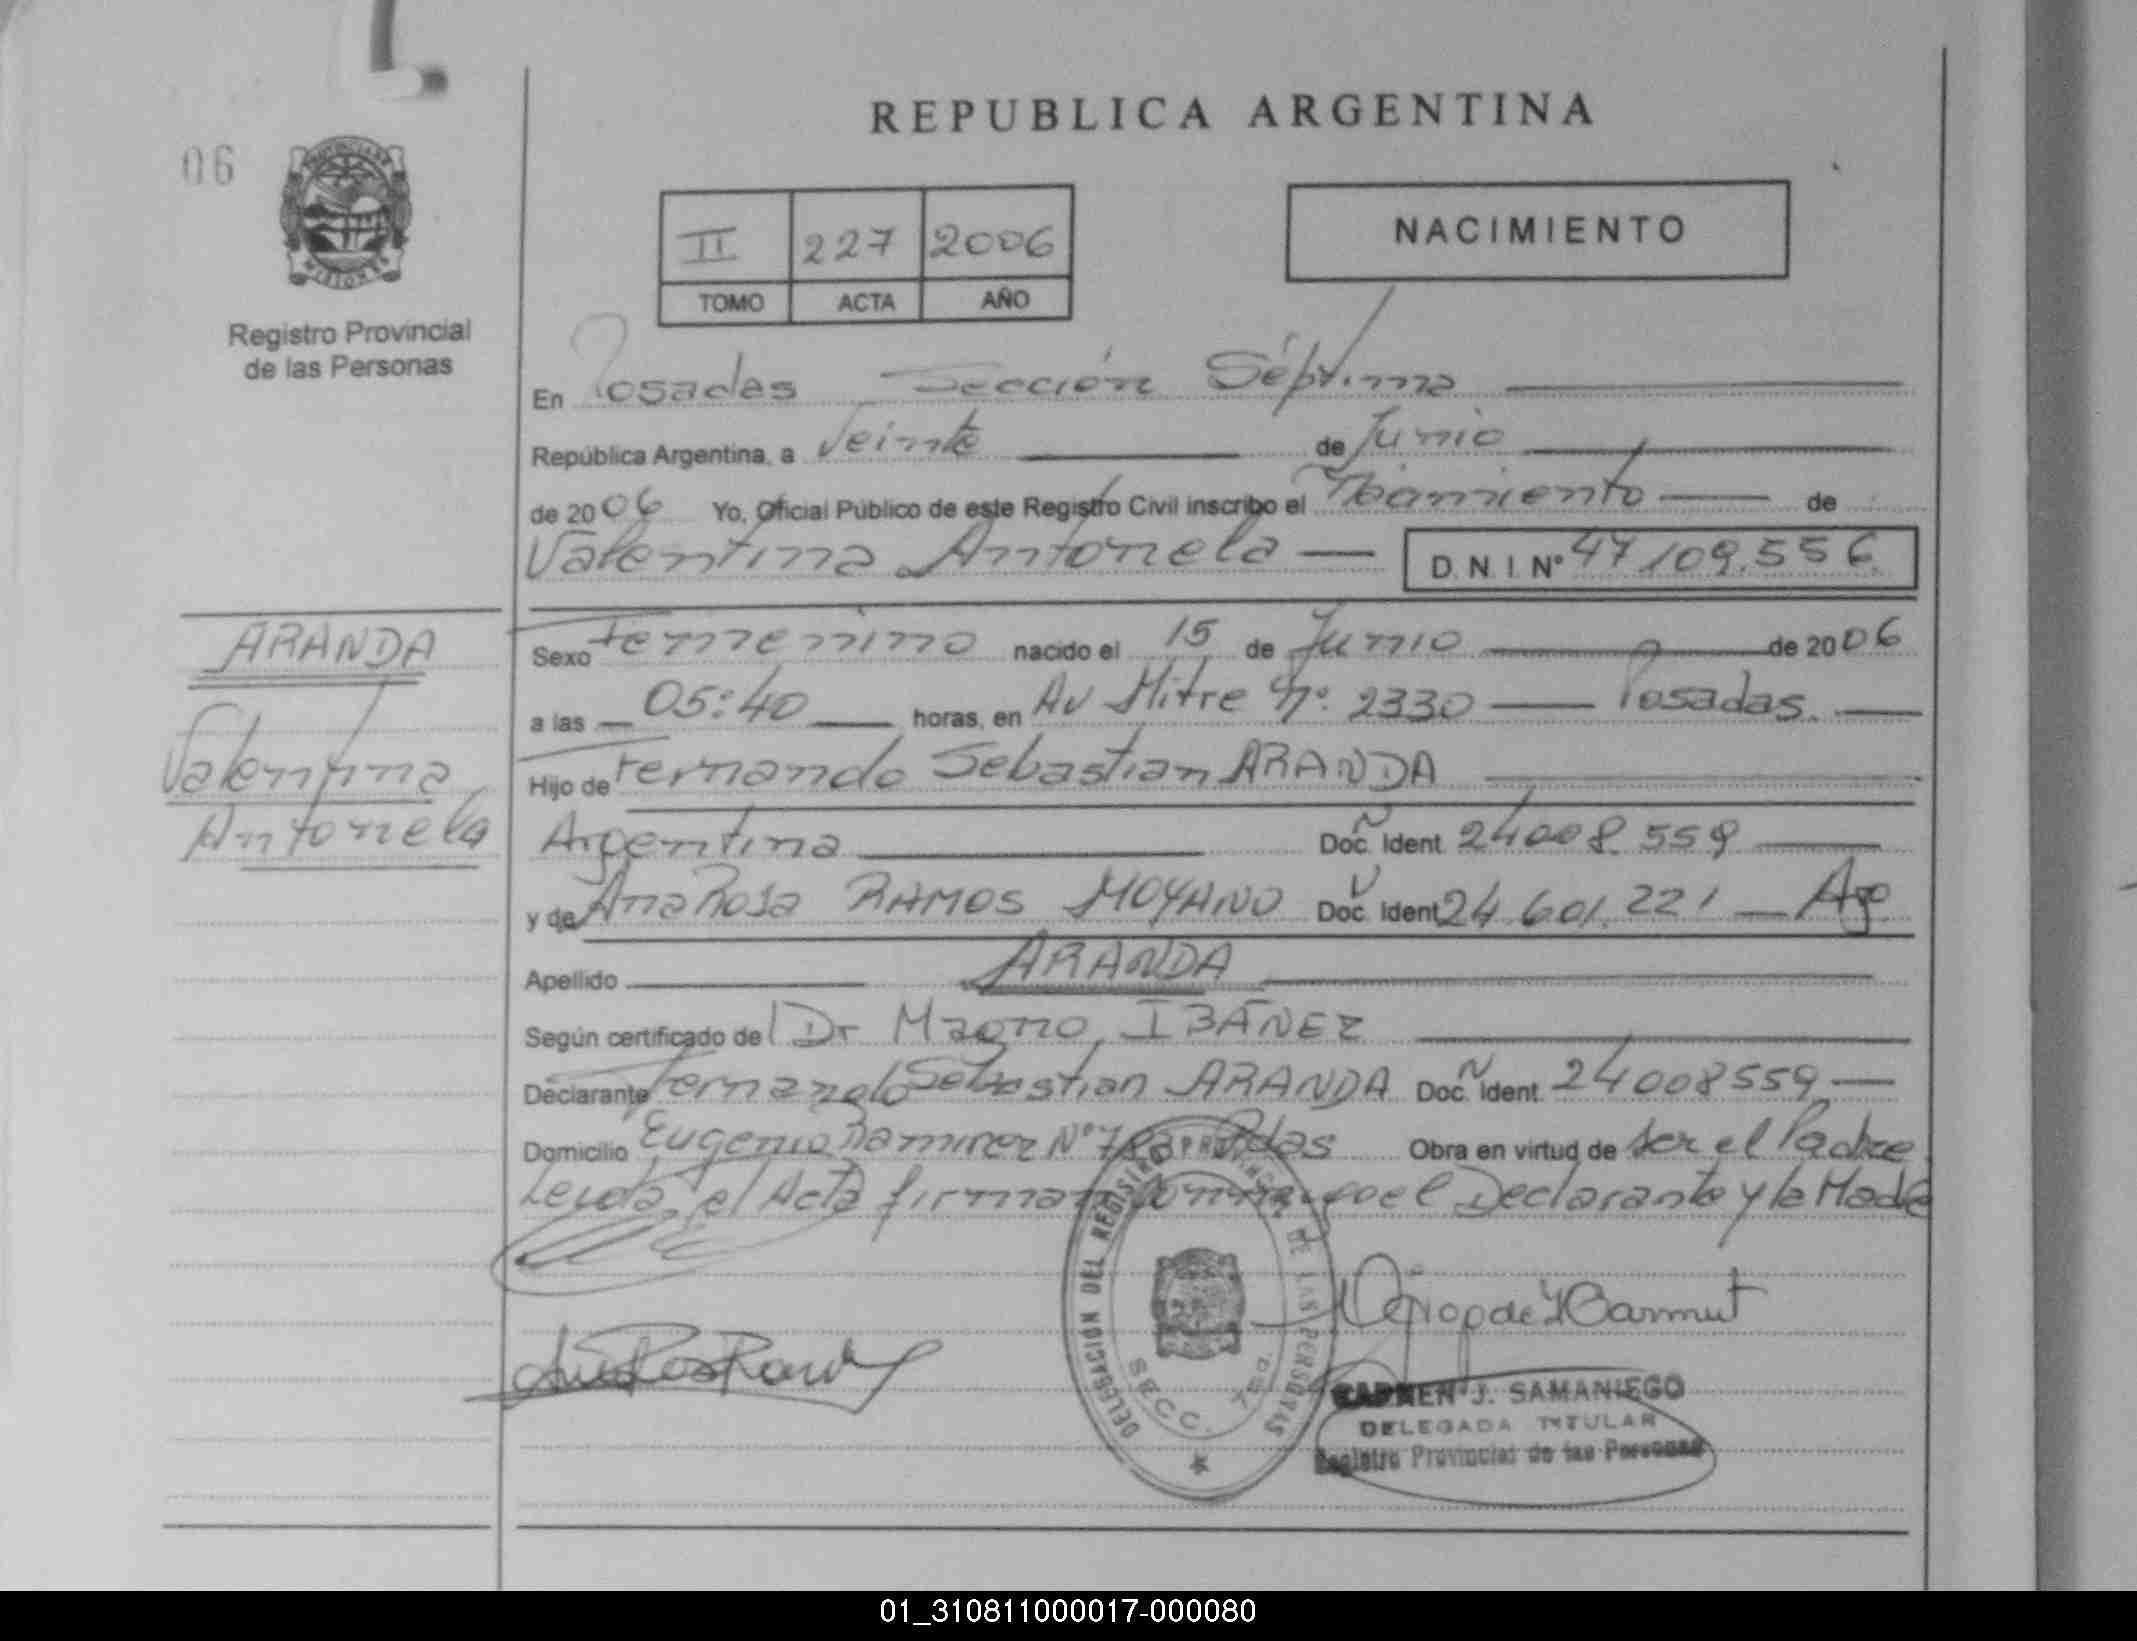 REPUBLICA ARGENTINA
06
PROVINCIA DE
MISIONES
Registro Provincial
de las Personas
II 227 2006
TOMO ACTA AÑO
NACIMIENTO
En Posadas Sección Séptima
República Argentina, a Veinte de Junio
de 2006 Yo, Oficial Público de este Registro Civil inscribo el Nacimiento de
Valentina Antonela D.N.I. Nº 47109.556
ARANDA
Valentina
Antonela
Sexo Femenino nacido el 15 de Junio de 2006
a las 05:40 horas, en Av Mitre Nº 2330 Posadas.
Hijo de Fernando Sebastian ARANDA
Argentina Doc. Ident. 24008.559
y de Ana Rosa RAMOS MOYANO Doc. Ident 24.601.221 Arg.
Apellido ARANDA
Según certificado de Dr Magno IBAÑEZ
Declarante Fernando Sebastian ARANDA Doc. Ident. 24008559
Domicilio Eugenio Ramirez Nº Pdas Obra en virtud de ser el Padre
Leida el Acta firman conmigo el Declarante y la Madre
DELEGACION DEL REGISTRO PROVINCIAL DE LAS PERSONAS
SECC. 7ma.
CARMEN J. SAMANIEGO
DELEGADA TITULAR
Registro Provincial de las Personas
01_310811000017-000080